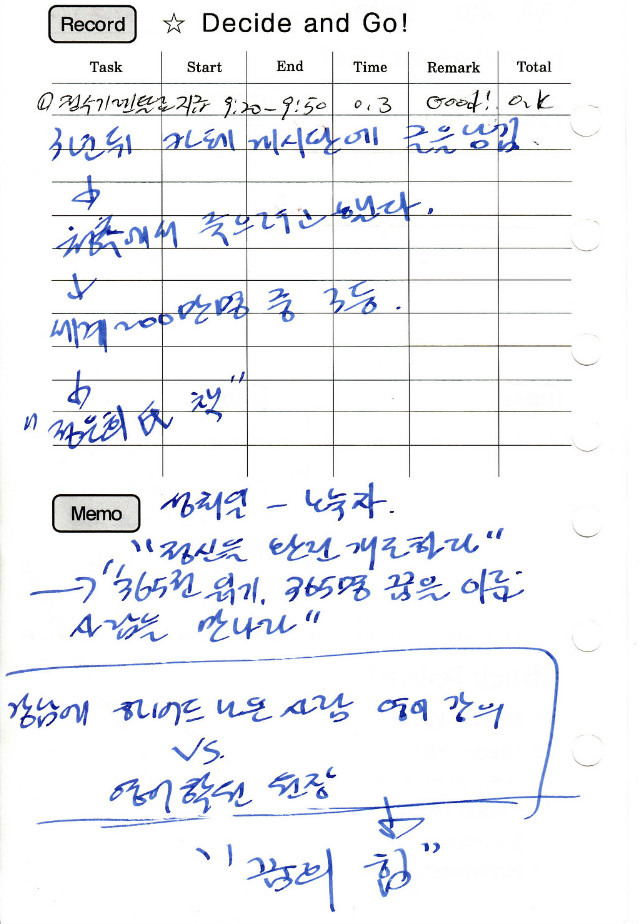 Record ☆ Decide and Go!
Task Start End Time Remark Total
① 정수기렌탈료지급 9:20-9:50 0.3 Good! o.k
3년뒤 카페 게시판에 글을 남김.
↓
에서 죽으려고 했다.
↓
세계 200만명 중 3등.
↓
"정은희 氏 책"
Memo
성희일 - 노숙자.
"정신을 완전 개조하라"
→ "365권 읽기, 365명 꿈을 이룬
사람을 만나라"
강남에 나온 사람 영어 강의
VS.
영어학원 원장
↓
"꿈의 힘"